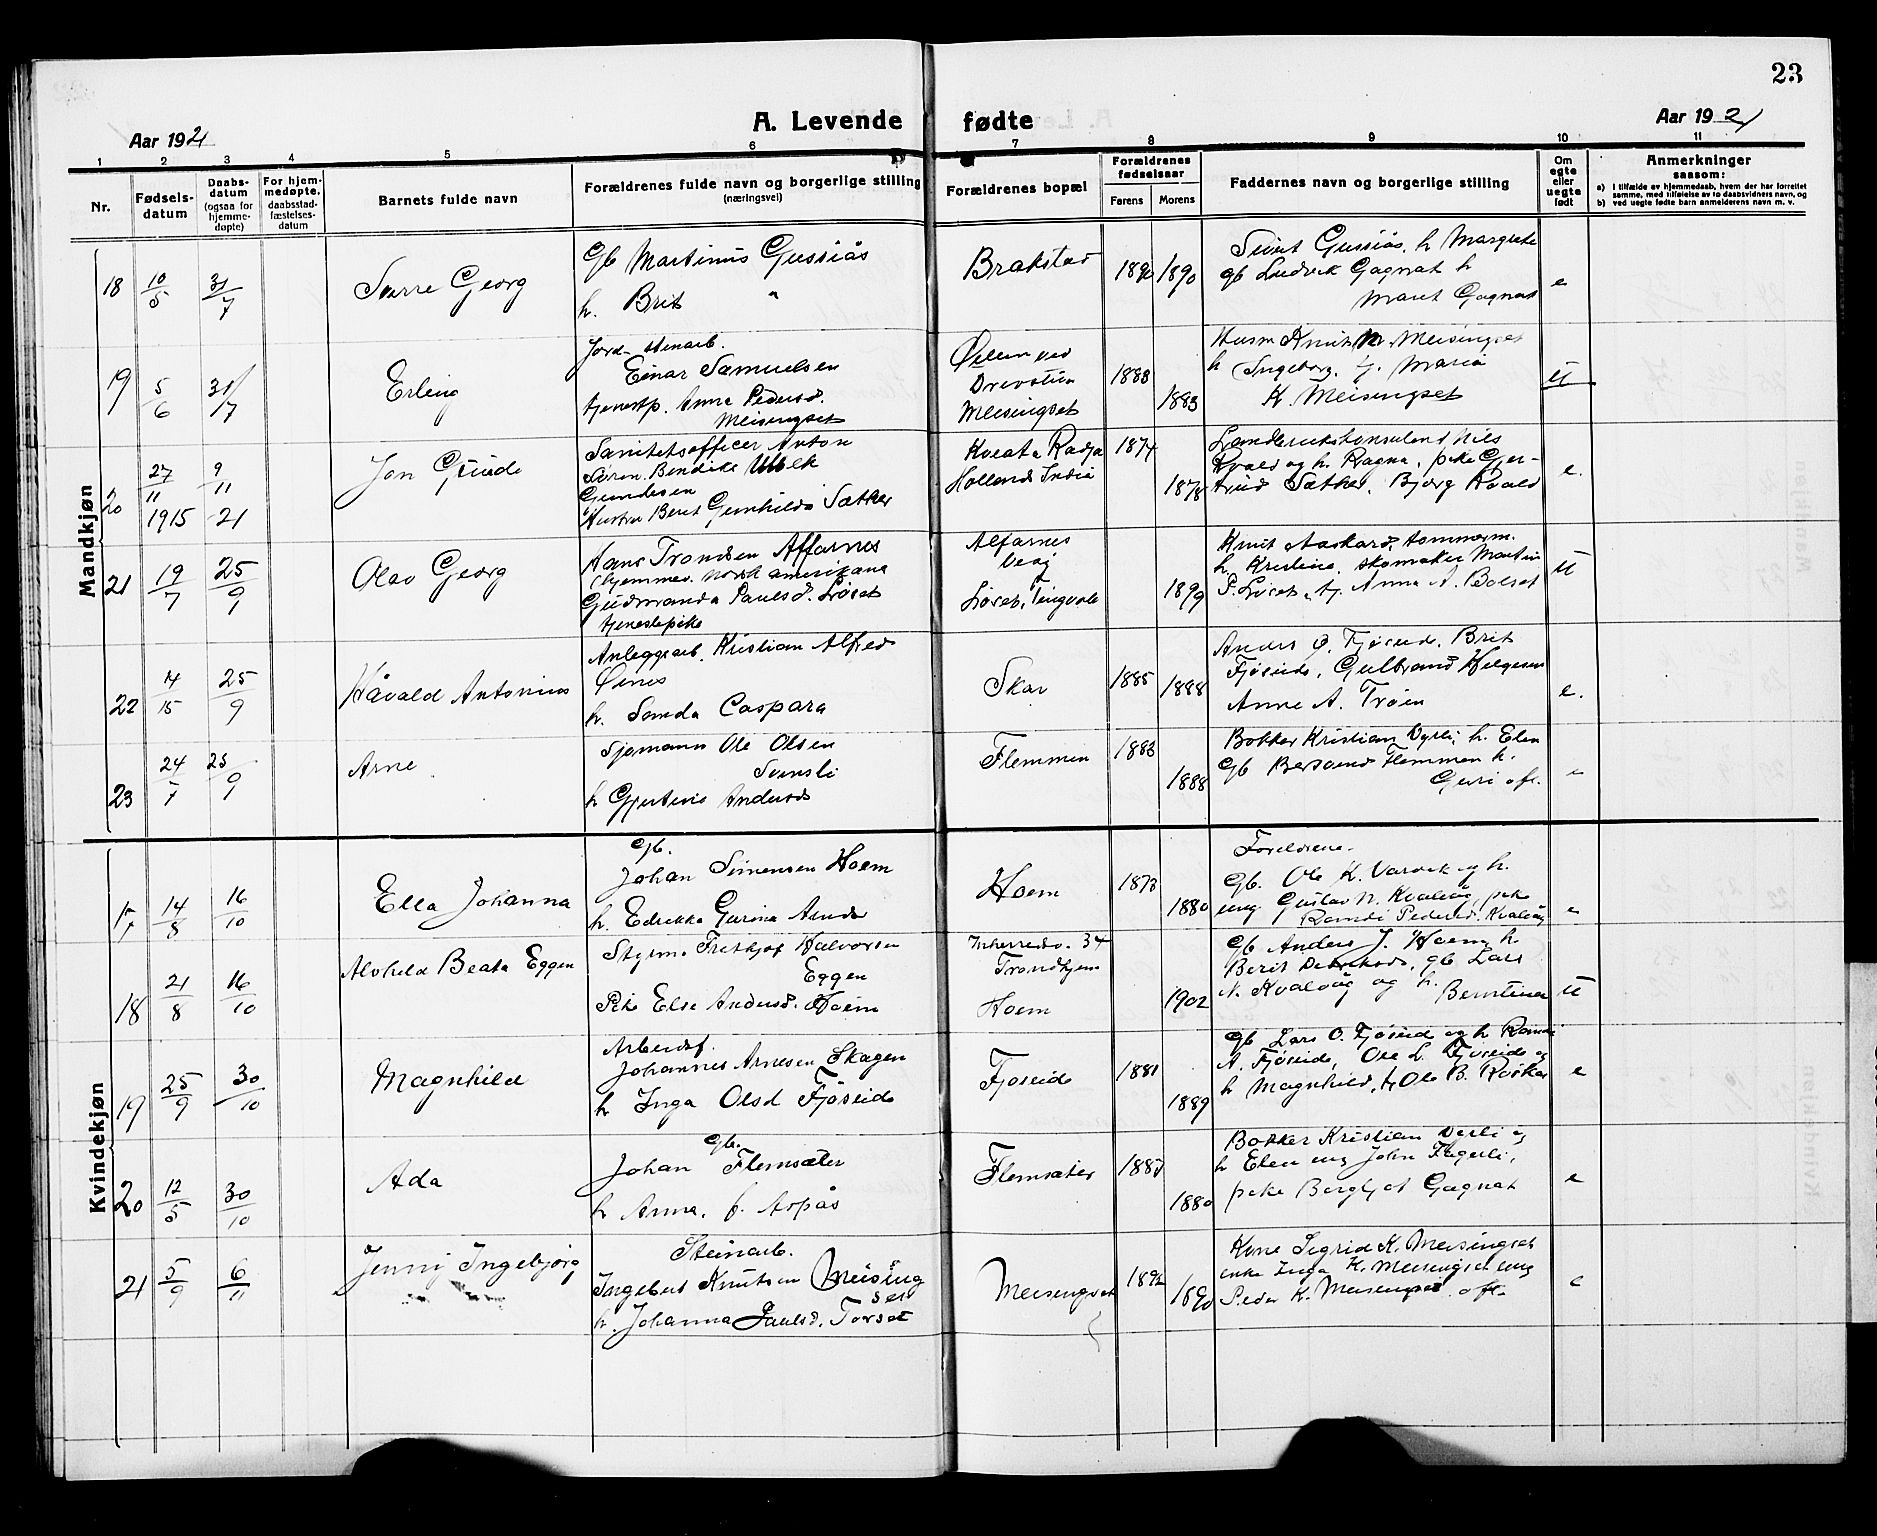 23
A. Levende fødte
Aar 1921
Aar 1921
1 2 3 4 5 6 7 8 9 10 11
Nr.
Fødsels-
datum
Daabs-
datum
(ogsaa for
hjemme-
døpte)
For hjem-
medøpte,
daabsstad-
fæstelses-
datum
Barnets fulde navn
Forældrenes fulde navn og borgerlige stilling
(næringsvei)
Forældrenes bopæl
Forældrenes
fødselsaar
Farens Morens
Faddernes navn og borgerlige stilling
Om
egte
eller
uegte
født
Anmerkninger
saasom:
a) I tilfælde av hjemmedaab, hvem der har forrettet
samme, med tilføielse av to daabsvidners navn, og
b) ved uegte fødte barn anmelderens navn m. v.
Mandkjøn
18 10/5 31/7 Sverre Georg
Gb Martinus Gussiås
h. Brit "
Brakstad 1890 1890
Sivert Gussiås, h Margrete
gb Ludvik Gagnat h
Marit Gagnat
e
19 5/6 31/7 Erling
Jord- Stenarb.
Einar Samuelsen
tjenestp. Anna Pedersd.
Meisingset
Drevstuen
Meisingset
1888 1883
Husm Knut N. Meisingset
h Ingeborg, tj. Maria
K. Meisingset
U
20 27/11 1915 9/11 -21 Jon Gjude
Sanitetsofficer Anton
Søren Bendike
Gundesen
Hustru Beret Gunhilda Sæther
Koeata Radja
Holland India
1874 1878
Landbrukskonsulent Nils
Kvale og h. Ragna, pike Gjer-
trud Sæther, Bjørg Kvale
e.
21 19/7 25/9 Olav Georg
Hans Tronsen Alfarnes
(hjemmev. norsk amerikana
Gudmanda Paulsd. Løset
tjenestepike
Alfarnes
Veøy
Løset, Tingvold
1899
Knut Aaskard, tømmerm.
h. Kristine, skomaker Martin
P. Løset, tj. Anna A. Bolset
U
22 14/15 25/9 Håvald Antonius
Anleggsarb. Kristian Alfred
Øines
h. Samda Caspara
Skar 1885 1888
Anders O. Fjøseide, Brit
Fjøseide, Gulbrand Helgesen
Anne A. Trøen
e.
23 24/7 25/9 Arne
Sjømann Ole Olsen
Svinsli
h Gjertine Andersd
Flemmen 1883 1888
Bøkker Kristian Dyrli, h. Elen
Gb Bersvend Flemmen h.
Guri o fl.
e
Kvindekjøn
17 14/8 16/10 Ella Johanna
Gb.
Johan Simensen Hoem
h. Edrikka Gurina Andersd
Hoem 1873 1880
Foreldrene.
Gb. Ole K. Varvik og h.
ung. Gustav N. Kvalvåg, pike
Randi Pedersd. Kvalvåg
e
18 21/8 16/10 Alvhild Beata Eggen
Styrm. Fritjof Halvorsen
Eggen
Pik Else Andersd. Hoem
Inherredsv. 34
Trondhjem
Hoem
1902
Gb Anders J. Hoem, h.
Berit Petersd., gb Lars
N. Kvalvåg og h. Berntina
U
19 25/9 30/10 Magnhild
Arbeidsf.
Johannes Arnesen Skagen
h Inga Olsd Fjøseide
Fjøseide 1881 1889
Gb Lars O. Fjøseide og h Randi
A. Fjøseide, Ole L. Fjøseide og
h Magnhild, tj Ole B. Røkker
e
20 12/5 30/10 Ada
Gb.
Johan Flemsæter
h Anna, f. Aspås
Flemsæter 1885 1880
Bøkker Kristian Dyrli og
h Elen ung John Fagerli,
pike Bergljot Gagnat
e
21 5/9 6/11 Jenny Ingebjørg
Steinarb.
Ingebrit Knutsen Meising
set
h. Johanna Paulsd. Torset
Meisingset 1892 1890
Kone Sigrid K. Meisingset
enke Inga K. Meisingset ung
Peder K. Meisingset o fl.
e